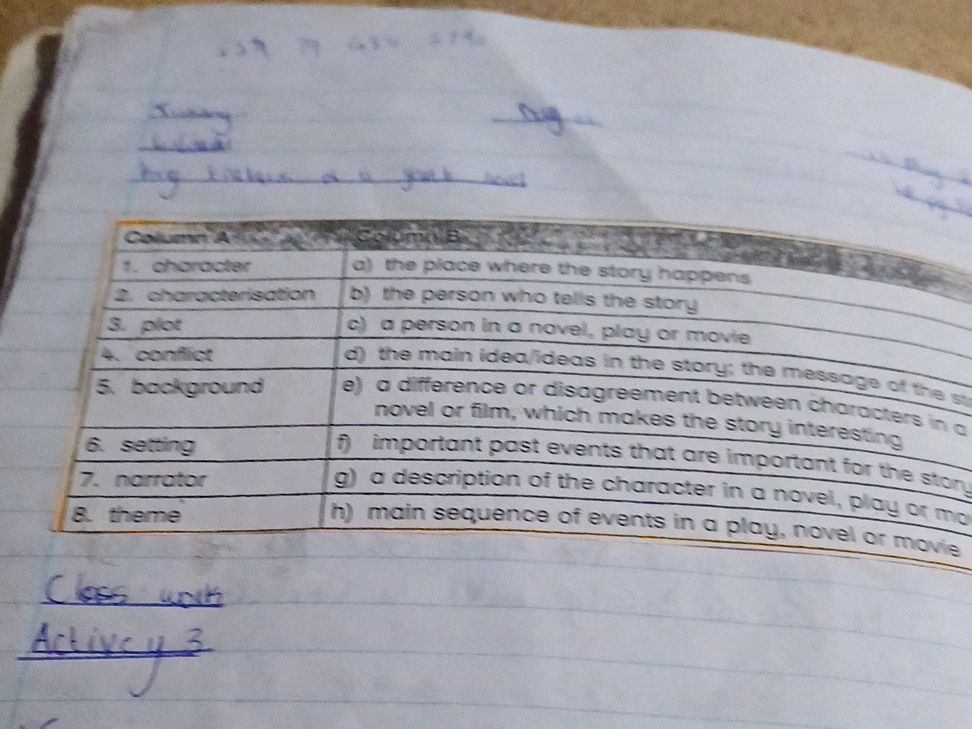 Column A Column B
1. character a) the place where the story happens
2. characterisation b) the person who tells the story
3. plot c) a person in a novel, play or movie
4. conflict d) the main idea/ideas in the story; the message of the
5. background e) a difference or disagreement between characters in a
novel or film, which makes the story interesting
6. setting f) important past events that are important for the story
7. narrator g) a description of the character in a novel, play or
8. theme h) main sequence of events in a play, novel or movie
Class work
Activey 3